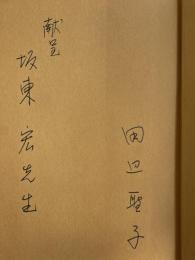 献呈
坂東宏先生
田辺聖子